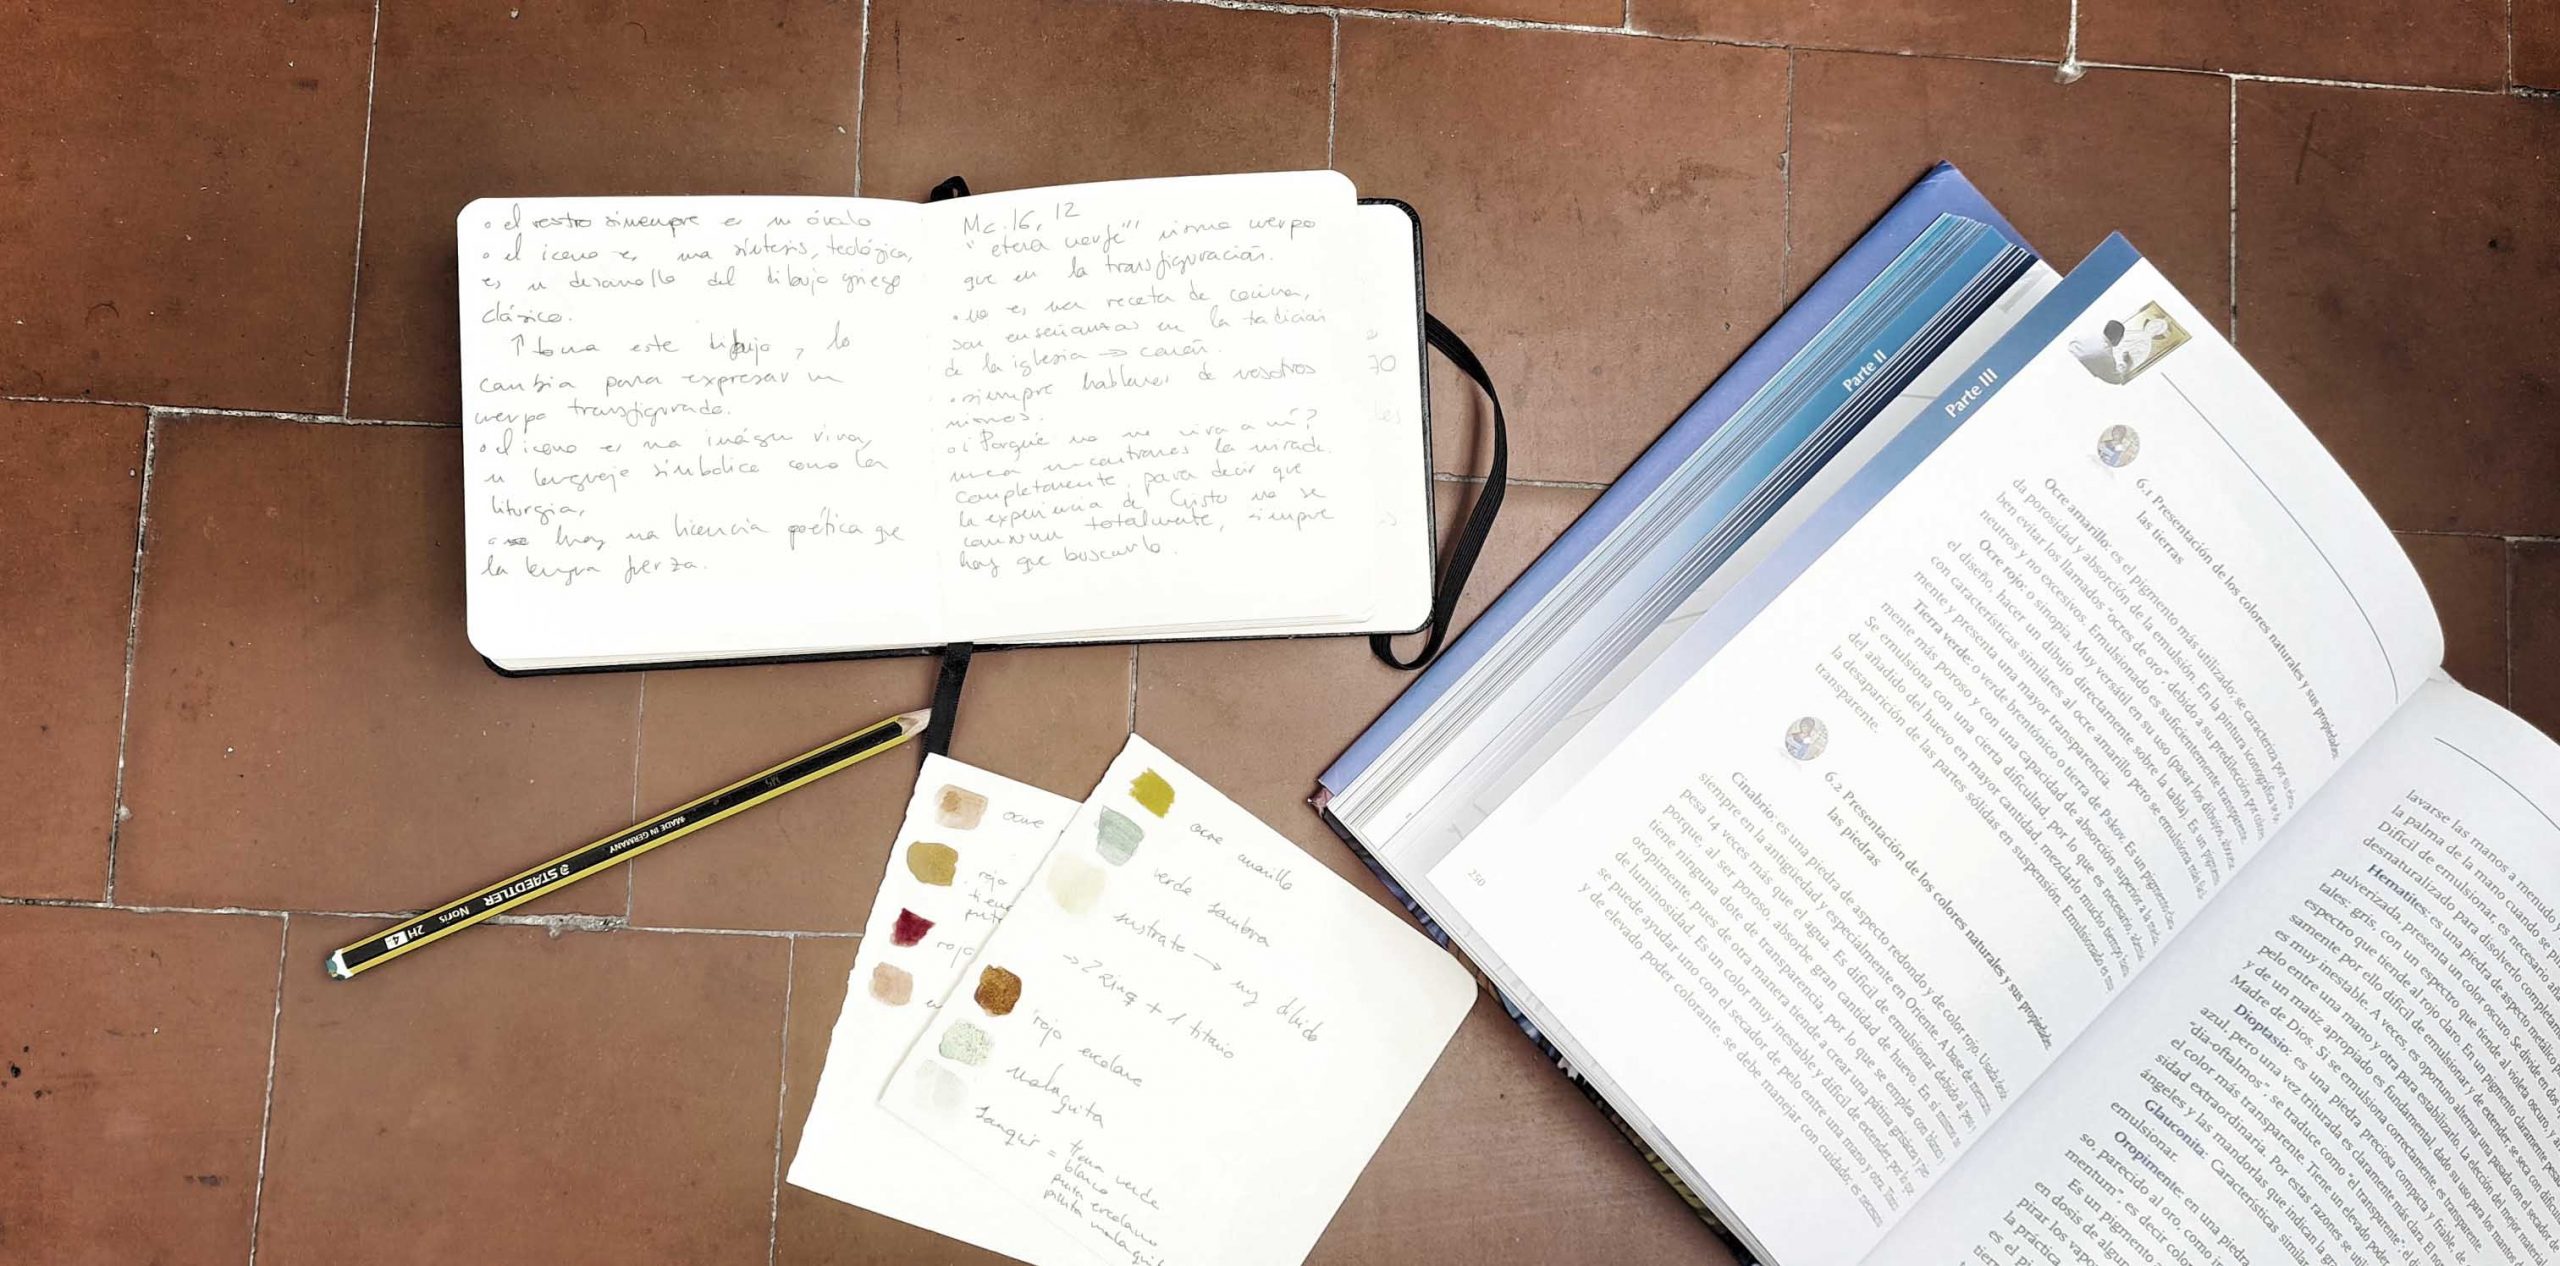 • el rostro simempre es un óvalo
• el icono es una síntesis, teológica,
es un desarrollo del dibujo griego
clásico.
↑ toma este dibujo, lo
cambia para expresar un
cuerpo transfigurado.
• el icono es una imágen viva,
un lenguaje simbolico como la
liturgia,
• hay una licencia poética que
la lengua fuerza.
Mc. 16, 12
mismo cuerpo
que en la transfiguración.
• no es una receta de cocina,
son enseñanzas en la tradicion
de la iglesia →
• siempre hablamos de vosotros
mismos.
• ¿Porqué no me mira a mí?
nunca encontramos la mirada
completamente, para decir que
la experiencia de Cristo no se
totalmente, siempre
hay que buscarlo.
70
STAEDTLER Noris 2H 4
MADE IN GERMANY
ocre
rojo
tierra
rojo
ocre amarillo
verde sombra
sustrato → muy diluido
→ 2 Zinq + 1 titanio
rojo ercolano
malaquita
Sanquir = tierra verde
blanco
punta ercolano
Parte II
Parte III
6.1 Presentación de los colores naturales y sus propiedades:
las tierras
Ocre amarillo: es el pigmento más utilizado; se caracteriza por su
da porosidad y absorción de la emulsión. En la pintura iconográfica se
ben evitar los llamados "ocres de oro", debido a su predilección por colores
neutros y no excesivos. Emulsionado es suficientemente transparente.
Ocre rojo: o sinopia. Muy versátil en su uso (pasar los dibujos,
el diseño, hacer un dibujo directamente sobre la tabla). Es un pigmento
con características similares al ocre amarillo pero se emulsiona más
mente y presenta una mayor transparencia.
Tierra verde: o verde brentónico o tierra de Pskov. Es un pigmento
mente más poroso y con una capacidad de absorción superior a la media.
Se emulsiona con una cierta dificultad, por lo que es necesario, además
del añadido del huevo en mayor cantidad, mezclarlo mucho tiempo hasta
la desaparición de las partes sólidas en suspensión. Emulsionado es muy
transparente.
6.2 Presentación de los colores naturales y sus propiedades:
las piedras
Cinabrio: es una piedra de aspecto redondo y de color rojo. Usada desde
siempre en la antigüedad y especialmente en Oriente. A base de mercurio
pesa 14 veces más que el agua. Es difícil de emulsionar debido al peso y
porque, al ser poroso, absorbe gran cantidad de huevo. En sí mismo no
tiene ninguna dote de transparencia, por lo que se emplea con blanco y
oropimente, pues de otra manera tiende a crear una pátina grisácea y
de luminosidad. Es un color muy inestable y difícil de extender, por lo que
se puede ayudar uno con el secador de pelo entre una mano y otra.
y de elevado poder colorante, se debe manejar con cuidado; es necesario
250
lavarse las manos a menudo y
la palma de la mano cuando se
Difícil de emulsionar, es necesario
desnaturalizado para disolverlo
Hematites: es una piedra de aspecto metálico
pulverizada, presenta un color oscuro. Se divide en dos
tales: gris, con un espectro que tiende al violeta oscuro, y
espectro que tiende al rojo claro. En un pigmento
samente por ello difícil de emulsionar y de extender, se seca con
es muy inestable. A veces, es oportuno alternar una pasada con el secador de
pelo entre una mano y otra para estabilizarlo. La elección del mejor
y de un matiz apropiado es fundamental, dado su uso para los mantos de
Madre de Dios. Si se emulsiona correctamente, es transparente.
Dioptasio: es una piedra preciosa compacta y friable, de
azul, pero una vez triturada es claramente más clara. El
"dia-oftalmos", se traduce como "el transparente":
el color más transparente. Tiene un elevado poder
sidad extraordinaria. Por estas razones se
ángeles y las mandorlas que indican la
Glauconita: Características
emulsionar.
Oropimente: en una piedra
so, parecido al oro, como
mentum", es decir color
Es un pigmento
en dosis de
pirar los
la práctica
es el